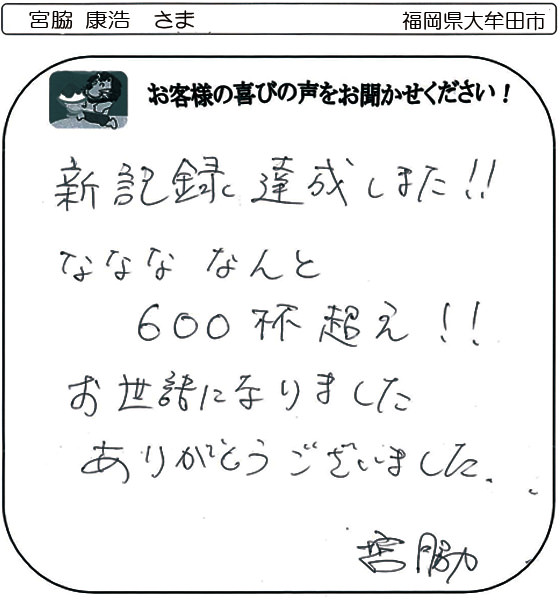 宮脇 康浩 さま 福岡県大牟田市
お客様の喜びの声をお聞かせください！
新記録達成しました!!
なななな なんと
600杯超え!!
お世話になりました
ありがとうございました.
宮脇